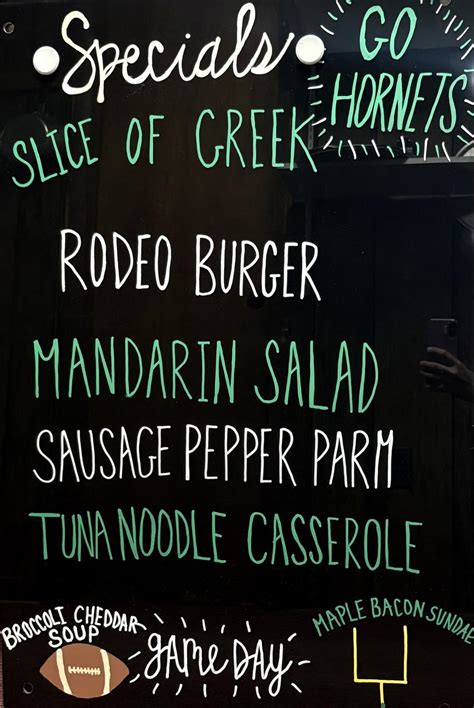 Specials
GO
HORNETS
SLICE OF GREEK
RODEO BURGER
MANDARIN SALAD
SAUSAGE PEPPER PARM
TUNA NOODLE CASSEROLE
BROCCOLI CHEDDAR
SOUP
GAME DAY
MAPLE BACON SUNDAE